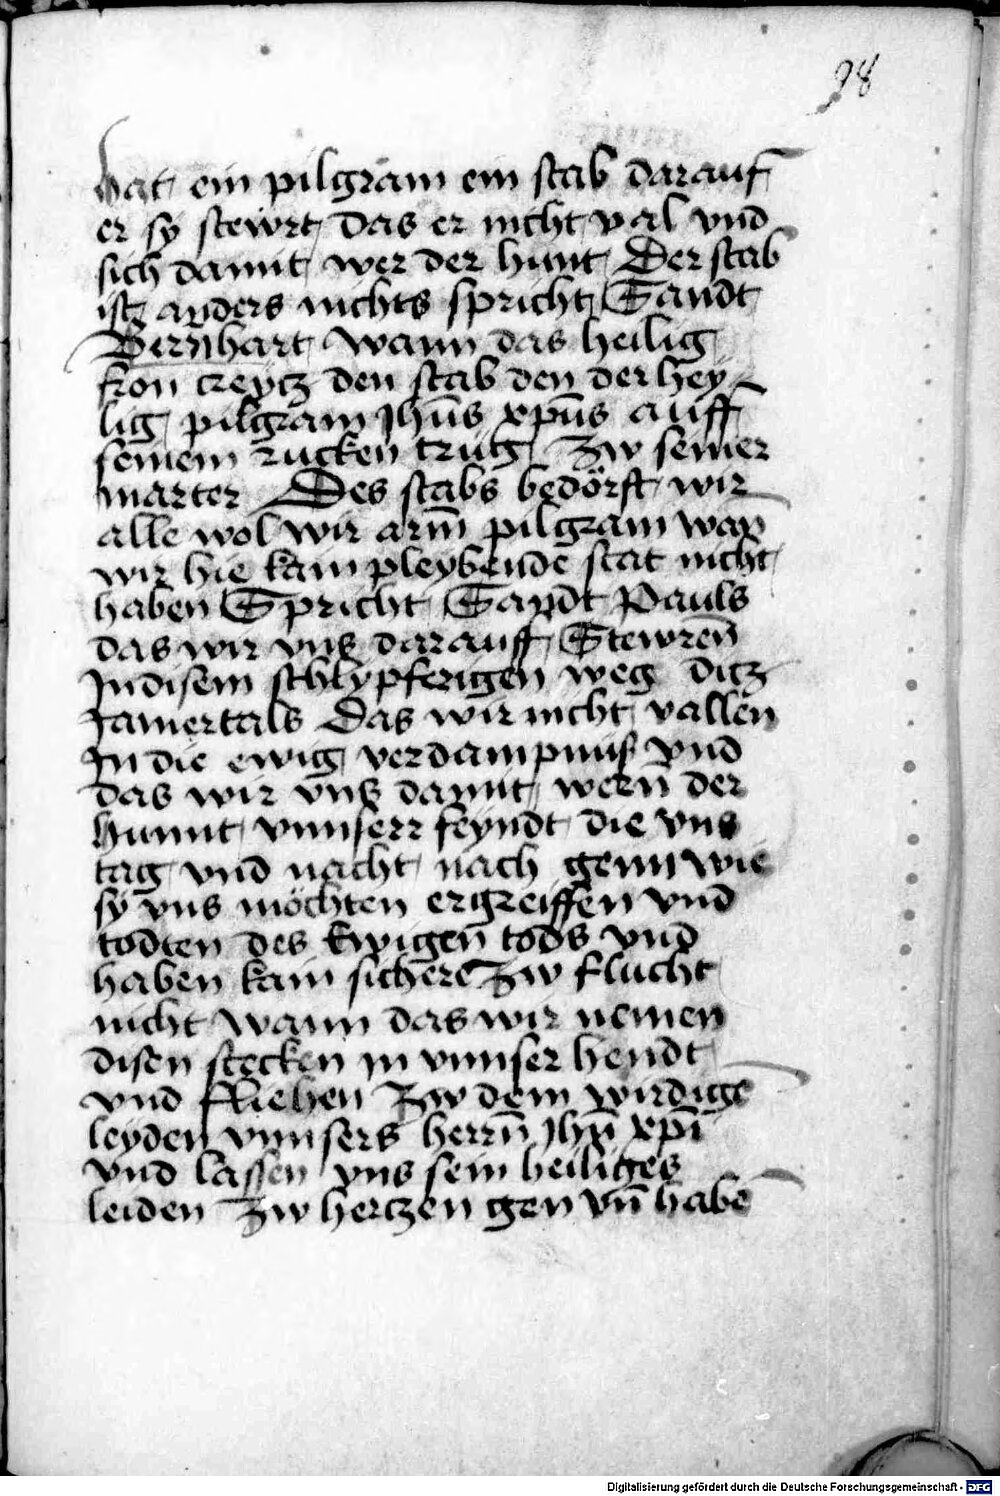 98
hat ein pilgram ein stab darauf
er sy stewrt das er nicht val vnd
sich damit wer der hunt Der stab
ist anders nichts spricht Sandt
Bernhart wann das heilig
fron creytz den stab den der hey
lig pilgram Jhūs xpūs auff
seinem rucken trug zw seiner
marter Des stabs bedörft wir
alle wol wir arm̄ pilgram wan̄
wir hie kain pleybende stat nicht
haben Spricht Sandt Pauls
das wir vns darauff Stewren̄
In disem schlypferigen weg ditz
Jamertals Das wir nicht vallen
In die ewig verdampnuß vnd
das wir vns damit wern̄ der
hunnt vnnserr feyndt die vns
tag vnd nacht nach genn wie
sy vns möchten ergreiffen vnd
todten des Ewigen̄ tods vnd
haben kain sichere zw flucht
nicht wann das wir nemen
disen stecken in vnnser hendt
vnd fliehen zw dem wirdigē
leyden vnnsers herrn̄ Jhū xpī
vnd lassen vns sein heiliges
leiden zw hertzen gen vn̄ habē
Digitalisierung gefördert durch die Deutsche Forschungsgemeinschaft - DFG